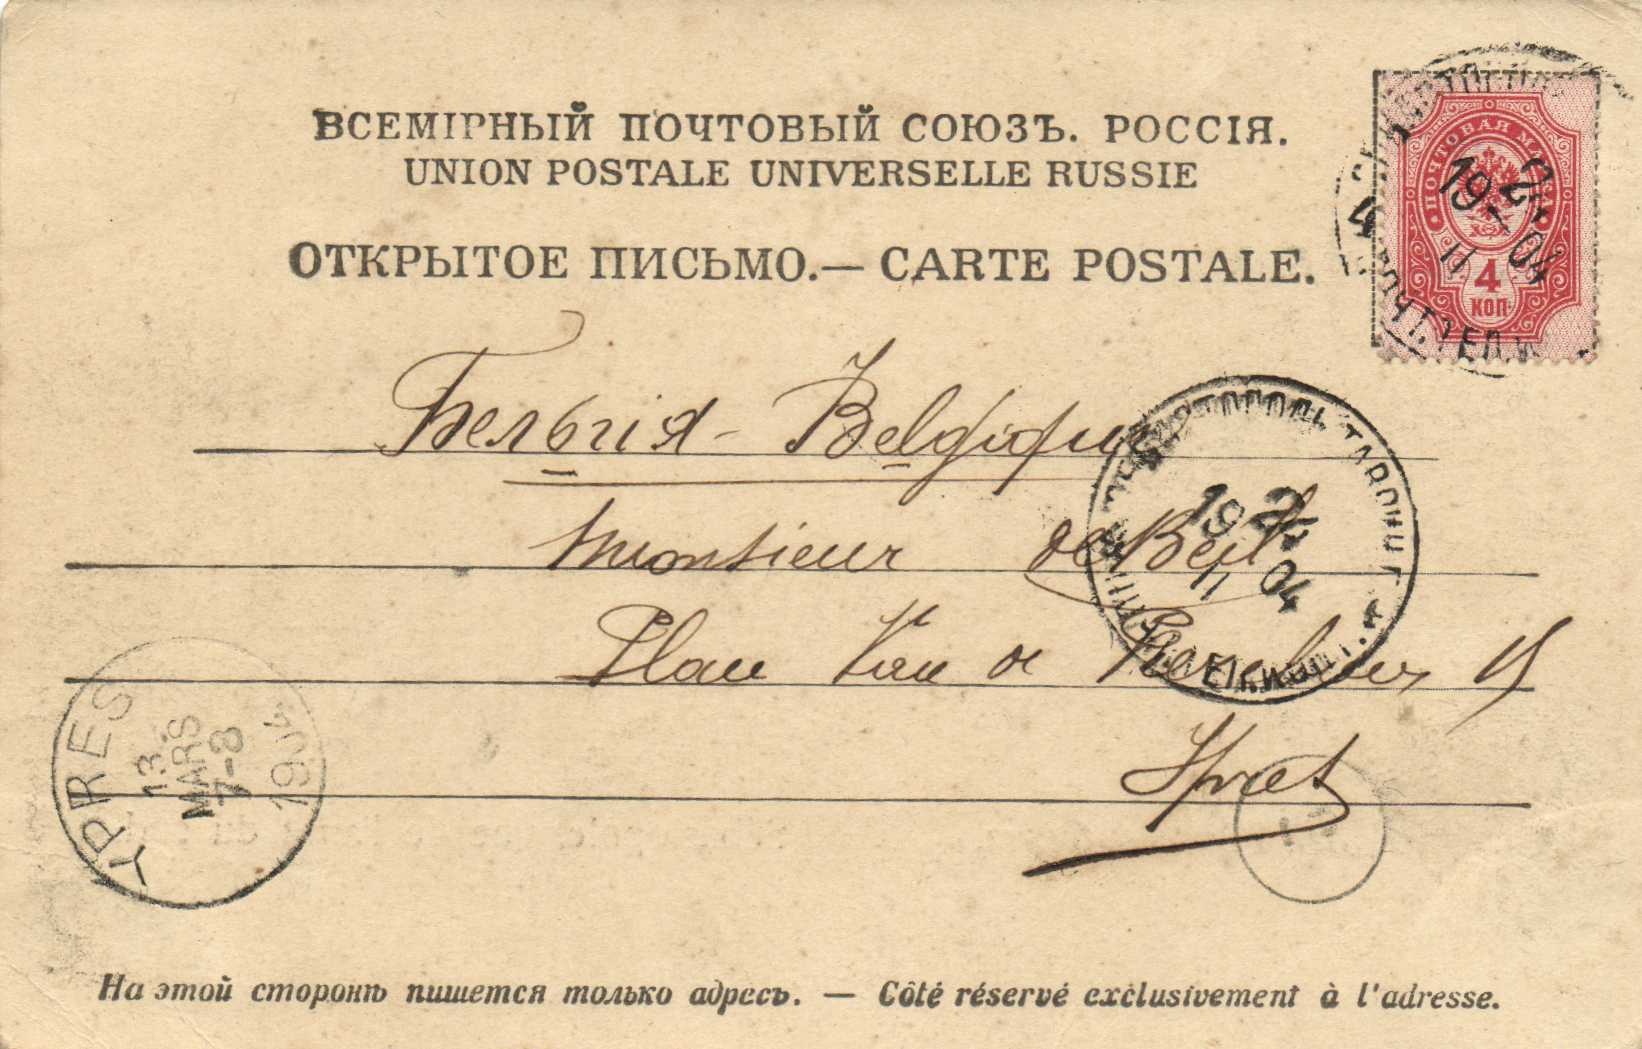 ВСЕМІРНЫЙ ПОЧТОВЫЙ СОЮЗЪ. РОССІЯ.
UNION POSTALE UNIVERSELLE RUSSIE
ОТКРЫТОЕ ПИСЬМО.— CARTE POSTALE.
ПОЧТОВАЯ МАРКА
4
КОП.
19 2
II 04
Бельгія - Belgique
СЕВАСТОПОЛЬ ТАВРИЧ. Г.
19 24
II 04
Monsieur de Beil
15
YPRES
13
MARS
7-8
1904
На этой сторонѣ пишется только адресъ. — Côté réservé exclusivement à l'adresse.